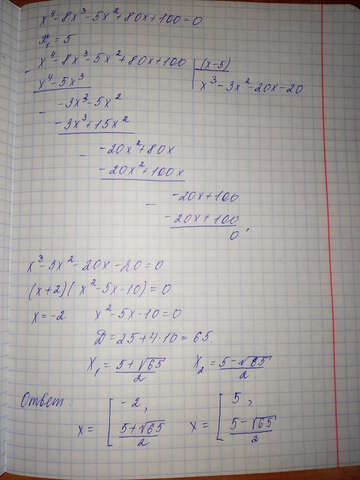 x⁴-8x³-5x²+80x+100=0
x₁=5
- x⁴-8x³-5x²+80x+100 | (x-5)
x⁴-5x³ x³-3x²-20x-20
- -3x³-5x²
-3x³+15x²
- -20x²+80x
-20x²+100x
- -20x+100
-20x+100
0,
x³-3x²-20x-20=0
(x+2)(x²-5x-10)=0
x=-2 x²-5x-10=0
D=25+4·10=65
x₁=(5+√65)/2 x₂=(5-√65)/2
Ответ
x=[-2, (5+√65)/2 x=[5, (5-√65)/2